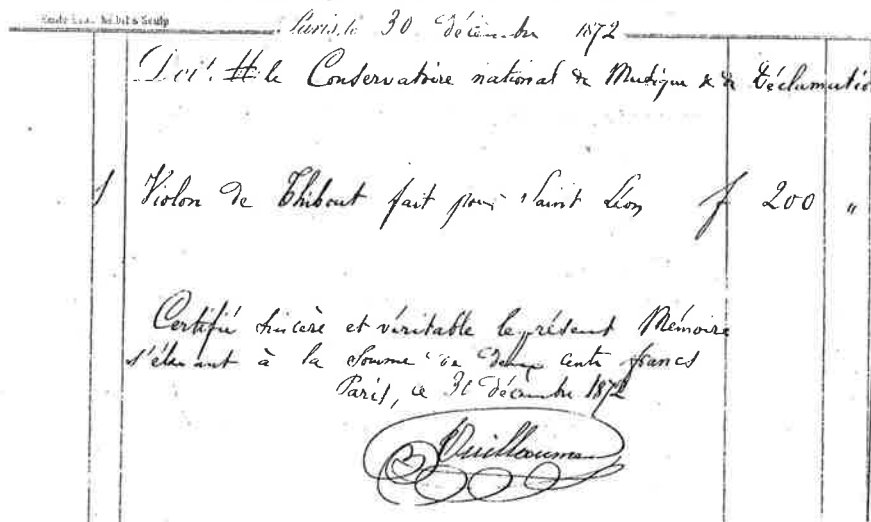 Paris, le 30 décembre 1872
Doit le Conservatoire national de Musique & de Déclamatio
1 Violon de Thibout fait pour Saint Léon f 200 "
Certifié sincère et véritable le présent Mémoire
s'élevant à la somme de deux cents francs
Paris, ce 30 décembre 1872
Vuillaume